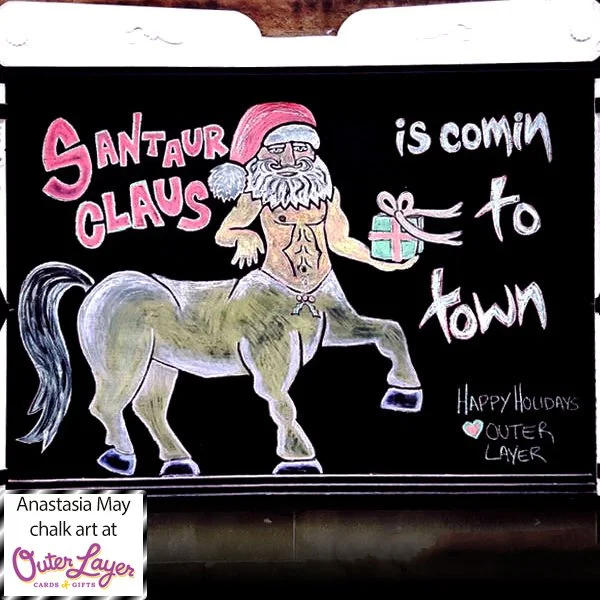 SANTAUR
CLAUS
is comin
to
town
HAPPY HOLIDAYS
OUTER
LAYER
Anastasia May
chalk art at
Outer Layer
CARDS & GIFTS